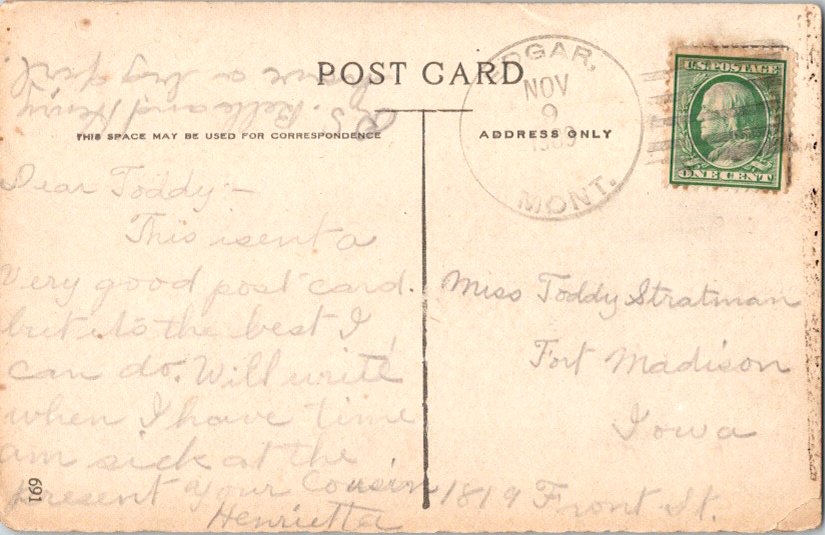 POST CARD
THIS SPACE MAY BE USED FOR CORRESPONDENCE
ADDRESS ONLY
EDGAR,
NOV
9
1909
MONT.
U.S. POSTAGE
ONE CENT
Dear Toddy –
This isent a
very good post card.
but its the best I
can do. Will write
when I have time
am sick at the
present Your Cousin
Henrietta
P.S. Belle and Henry
have a big girl.
Miss Toddy Stratman
Fort Madison
Iowa
1819 Front St.
691